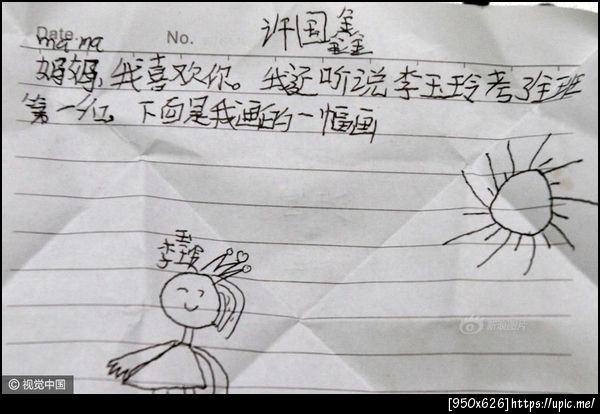 Date.
No.
许国鑫
ma ma
妈妈,我喜欢你。我还听说李玉玲考了全班
第一位。下面是我画的一幅画
李玉玲
新浪图片
© 视觉中国
[950x626]https://upic.me/